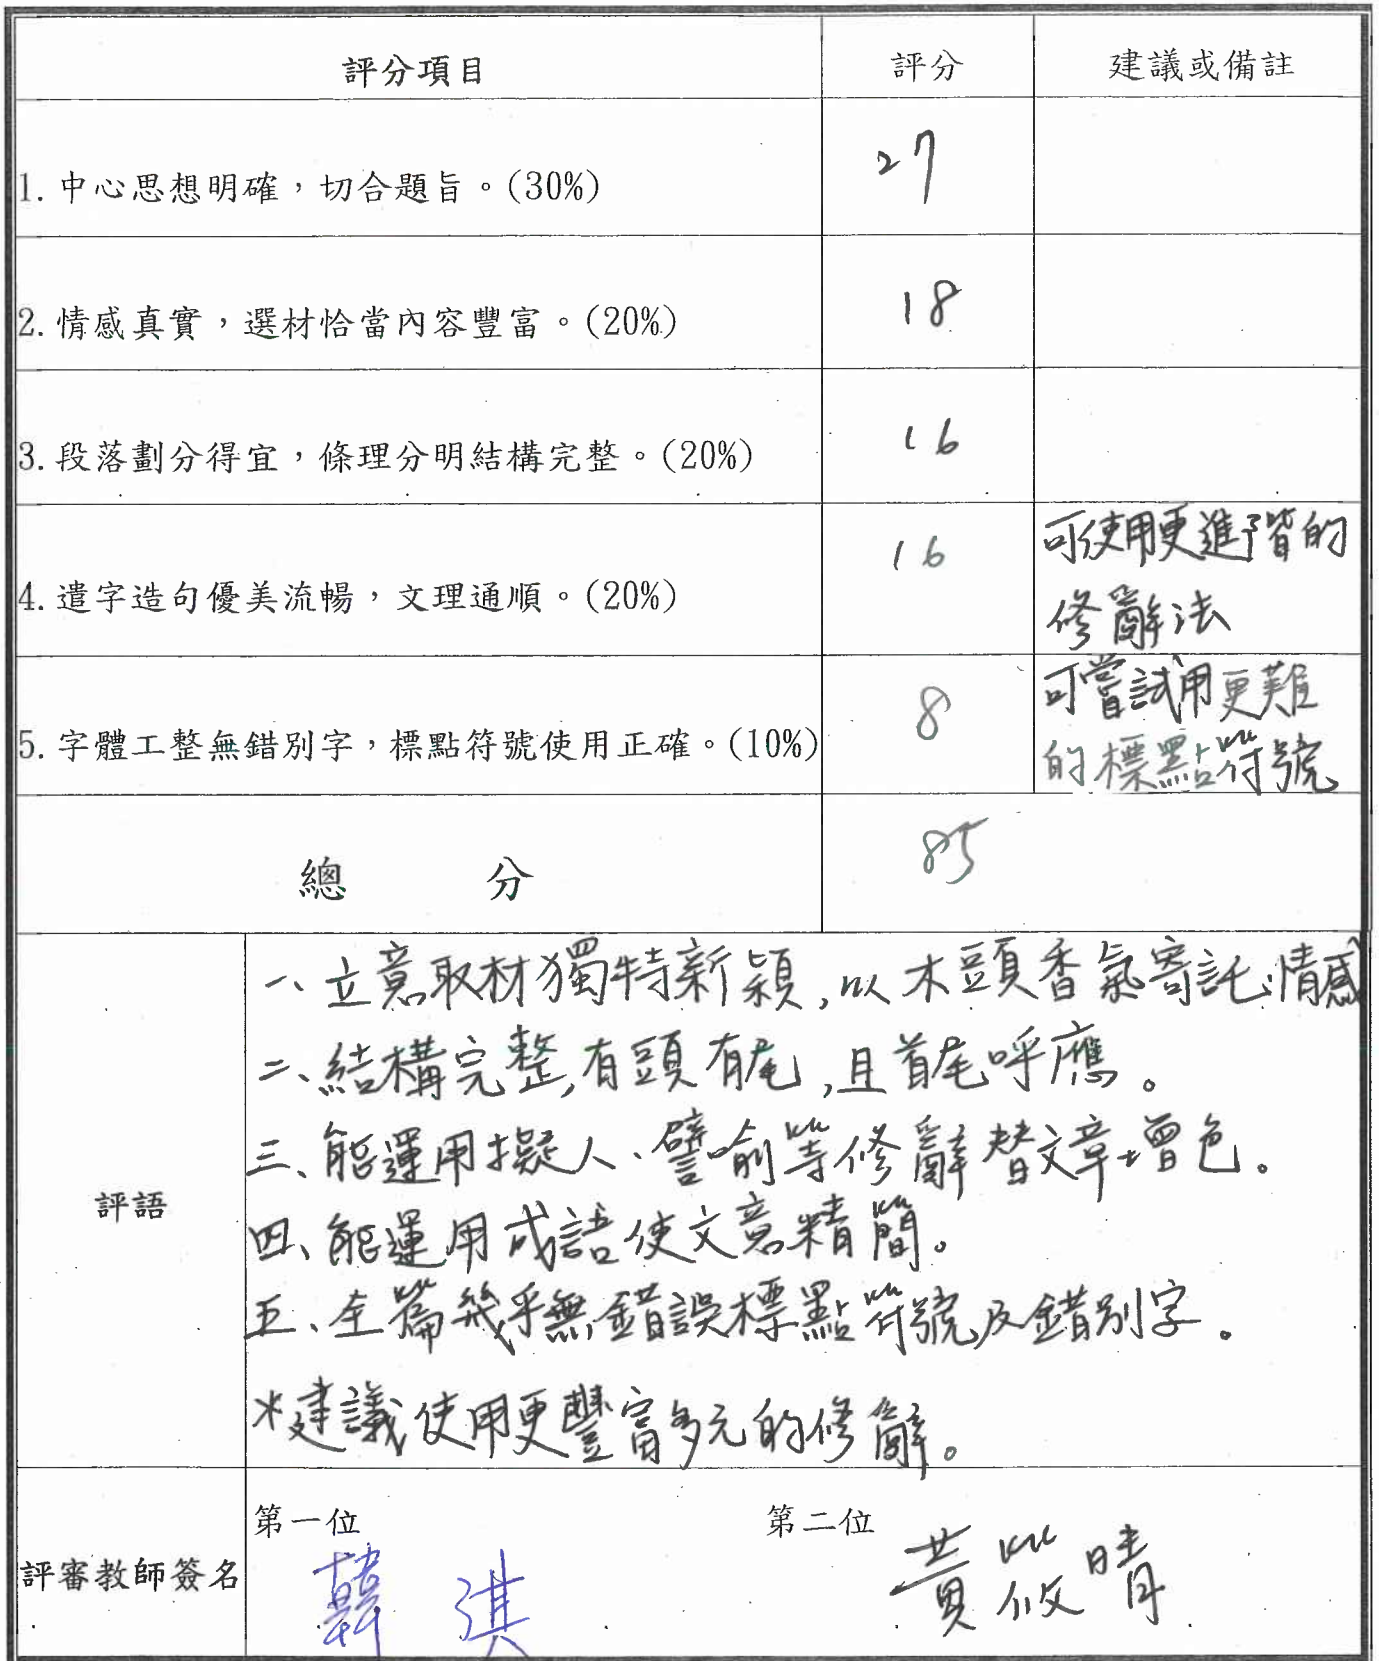 評分項目 評分 建議或備註
1. 中心思想明確，切合題旨。(30%) 27
2. 情感真實，選材恰當內容豐富。(20%) 18
3. 段落劃分得宜，條理分明結構完整。(20%) 16
4. 遣字造句優美流暢，文理通順。(20%) 16 可使用更進階的
修辭法
5. 字體工整無錯別字，標點符號使用正確。(10%) 8 可嘗試用更難
的標點符號
總分 85
評語
一、立意取材獨特新穎，以木頭香氣寄託情感
二、結構完整，有頭有尾，且首尾呼應。
三、能運用擬人、譬喻等修辭替文章增色。
四、能運用成語使文意精簡。
五、全篇幾乎無錯誤標點符號及錯別字。
*建議使用更豐富多元的修辭。
評審教師簽名
第一位 韓淇
第二位 黃筱晴